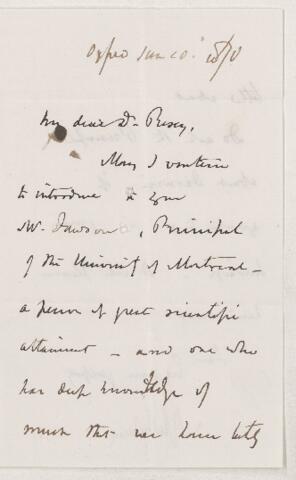 Oxford Jan 20. 1870
My dear Dr. Pusey,
May I venture
to introduce to your
Mr. Dawson, Principal
of the University of Montreal –
a person of great scientific
attainment – and one who
has deep knowledge of
much that we have lately